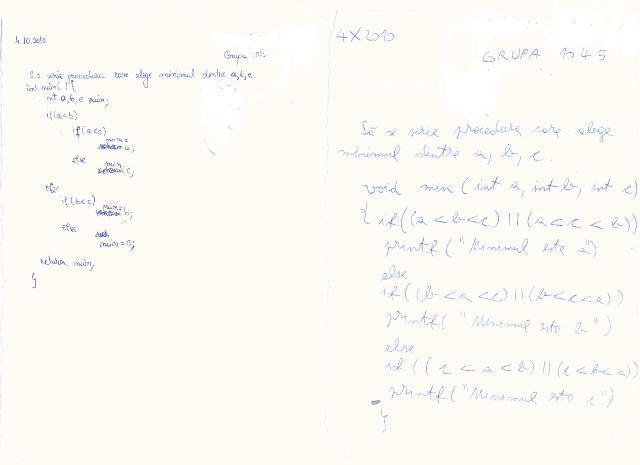 4.10.2010
Grupa
S.: scrie procedura care alege minimul dintre a,b,c
int min( ) {
int a,b,c min;
if(a<b)
if(a<c)
min=
a;
else
min
c;
else
if(b<c)
min=
else
min=c;
return min;
}
4 X 2010
GRUPA 1045
Să se scrie procedura care alege
minimul dintre a, b, c.
void min (int a, int b, int c)
{ if((a<b<c) || (a<c<b))
printf("Minimul este a")
else
if((b<a<c) || (b<c<a))
printf("Minimul este b")
else
if((c<a<b) || (c<b<a))
printf("Minimul este c")
}